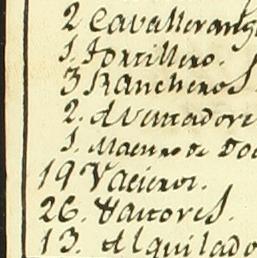 2 Cavallerang
1. Portillero.
3 Rancheros.
2. Aventadore
1. Maestro de Do
19 Vacieros.
26. Pastores.
13. Alquilado